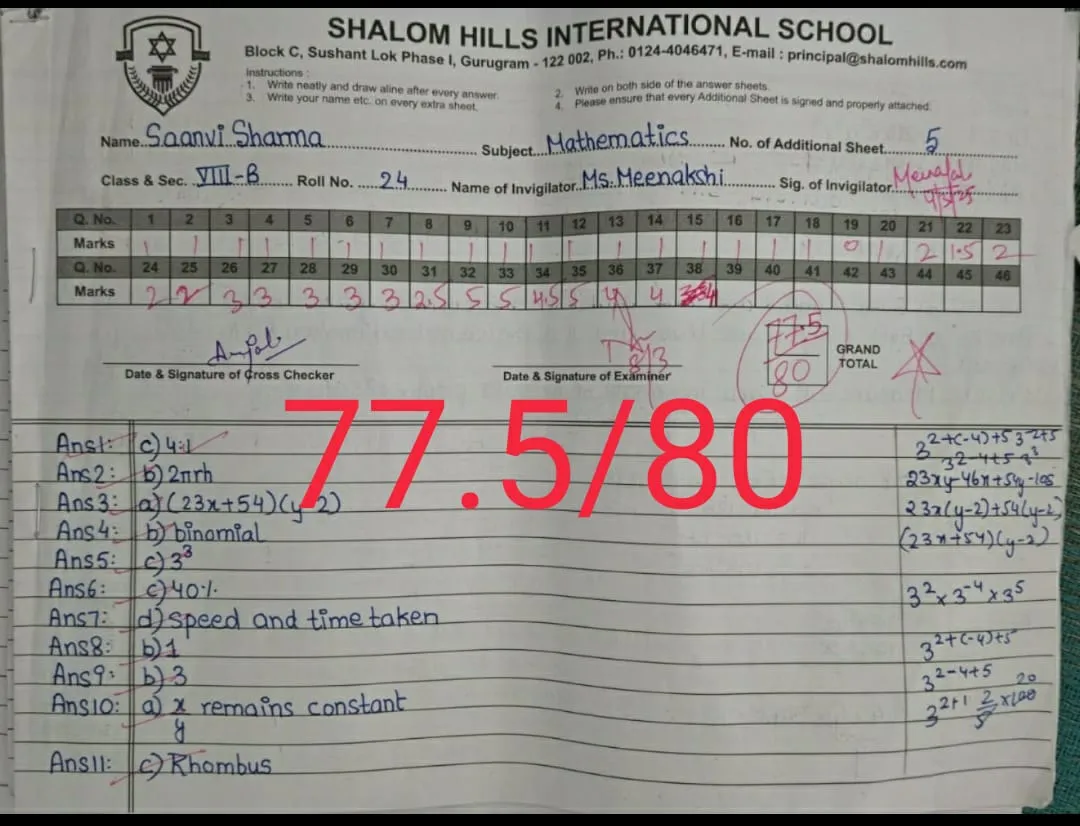 SHALOM HILLS INTERNATIONAL SCHOOL
Block C, Sushant Lok Phase I, Gurugram - 122 002, Ph.: 0124-4046471, E-mail : principal@shalomhills.com
Instructions :
1. Write neatly and draw aline after every answer.
2. Write on both side of the answer sheets.
3. Write your name etc. on every extra sheet.
4. Please ensure that every Additional Sheet is signed and properly attached.
Name Saanvi Sharma Subject Mathematics No. of Additional Sheet 5
Class & Sec. VIII-B Roll No. 24 Name of Invigilator Ms. Meenakshi Sig. of Invigilator
Q. No. 1 2 3 4 5 6 7 8 9 10 11 12 13 14 15 16 17 18 19 20 21 22 23
Marks 1 1 1 1 1 1 1 1 1 1 1 1 1 1 1 1 1 1 0 1 2 1.5 2
Q. No. 24 25 26 27 28 29 30 31 32 33 34 35 36 37 38 39 40 41 42 43 44 45 46
Marks 2 2 3 3 3 3 3 2.5 5 5 4.5 5 4 4 4
77.5
80
GRAND TOTAL
8/3
Date & Signature of Cross Checker
Date & Signature of Examiner
77.5/80
Ans1: c) 4:1
Ans2: b) 2πrh
Ans3: a) (23x+54)(y-2)
Ans4: b) binomial
Ans5: c) 3³
Ans6: c) 40%
Ans7: d) speed and time taken
Ans8: b) 1
Ans9: b) 3
Ans10: a) x remains constant
y
Ans11: c) Rhombus
23x(y-2)+54(y-2)
(23x+54)(y-2)
3²x3⁻⁴x3⁵
3²⁺⁽⁻⁴⁾⁺⁵
3²⁻⁴⁺⁵
3²⁺¹ 2/5 x100 20